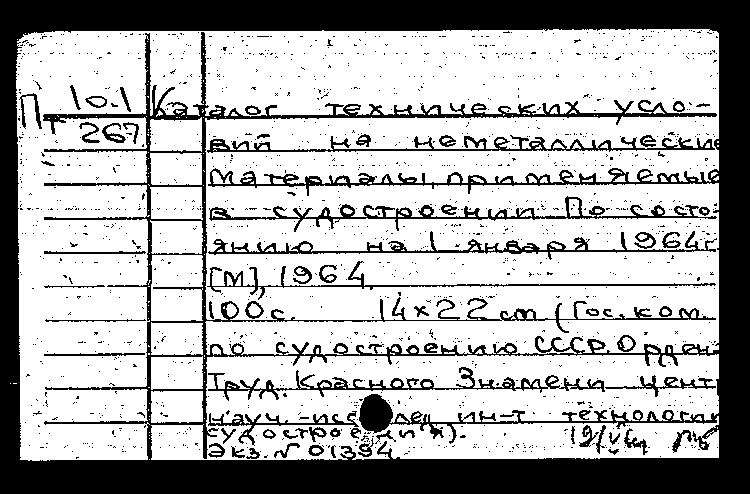 Пт 10.1 Каталог технических усло-
267 вий на неметаллические
материалы, применяемые
в судостроении По состо-
янию на 1 января 1964г
[М], 1964.
100с. 14×22 cm (Гос. ком.
по судостроению СССР. Орден
Труд. Красного Знамени центр
науч.-исслед ин-т технологии
судостроения).
Экз. № 01394.